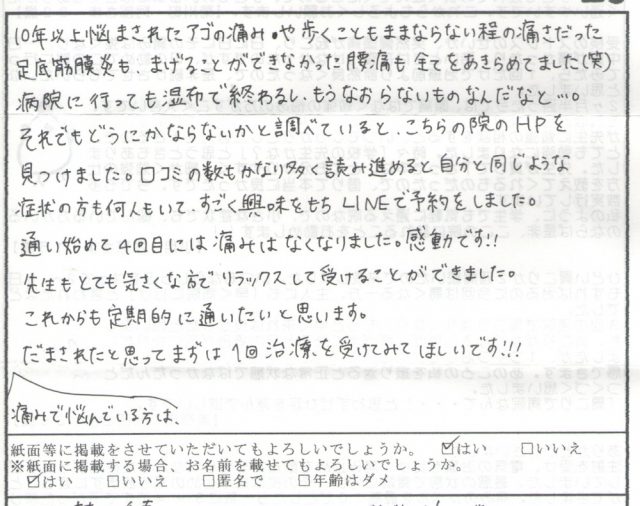 10年以上悩まされたアゴの痛み・や歩くこともままならない程の痛さだった
足底筋膜炎も、まげることができなかった腰痛も全てをあきらめてました(笑)
病院に行っても湿布で終わるし、もうなおらないものなんだなと…。
それでもどうにかならないかと調べていると、こちらの院のHPを
見つけました。口コミの数もかなり多く読み進めると自分と同じような
症状の方も何人もいて、すごく興味をもちLINEで予約をしました。
通い始めて4回目には痛みはなくなりました。感動です!!
先生もとても気さくな方でリラックスして受けることができました。
これからも定期的に通いたいと思います。
だまされたと思ってまずは1回治療を受けてみてほしいです!!!
痛みで悩んでいる方は、
紙面等に掲載をさせていただいてもよろしいでしょうか。 ☑はい □いいえ
※紙面に掲載する場合、お名前を載せてもよろしいでしょうか。
☑はい □いいえ □匿名で □年齢はダメ